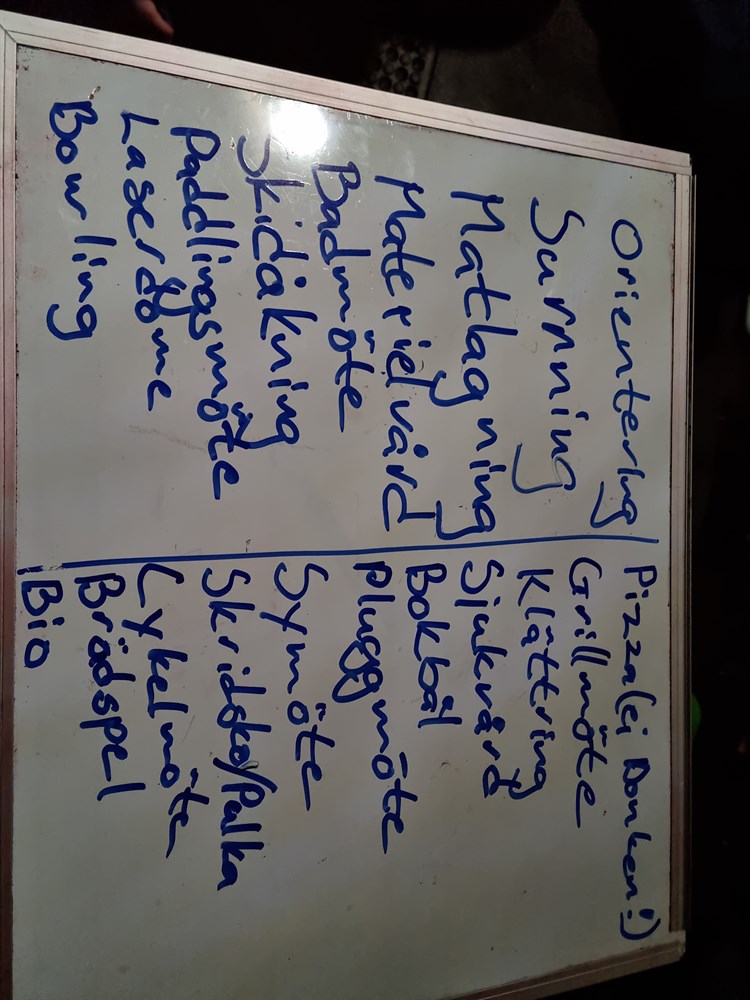 Orientering
Surrning
Matlagning
Materielvård
Badmöte
Skidåkning
Paddlingsmöte
Laserdome
Bowling
Pizza(ej Donken!)
Grillmöte
Klättring
Sjukvård
Bokbål
Pluggmöte
Symöte
Skridsko/Pulka
Cykelmöte
Brädspel
Bio